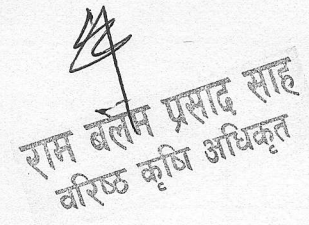 राम बलम प्रसाद साह
वरिष्ठ कृषि अधिकृत